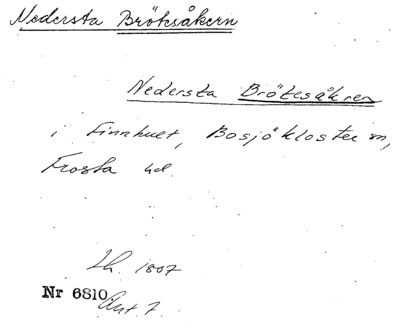 Nedersta Brötesåkern
Nedersta Brötesåkren
i Finnhult, Bosjökloster sn,
Frosta hd.
Lh. 1807
Nr 6810
Akt 7.